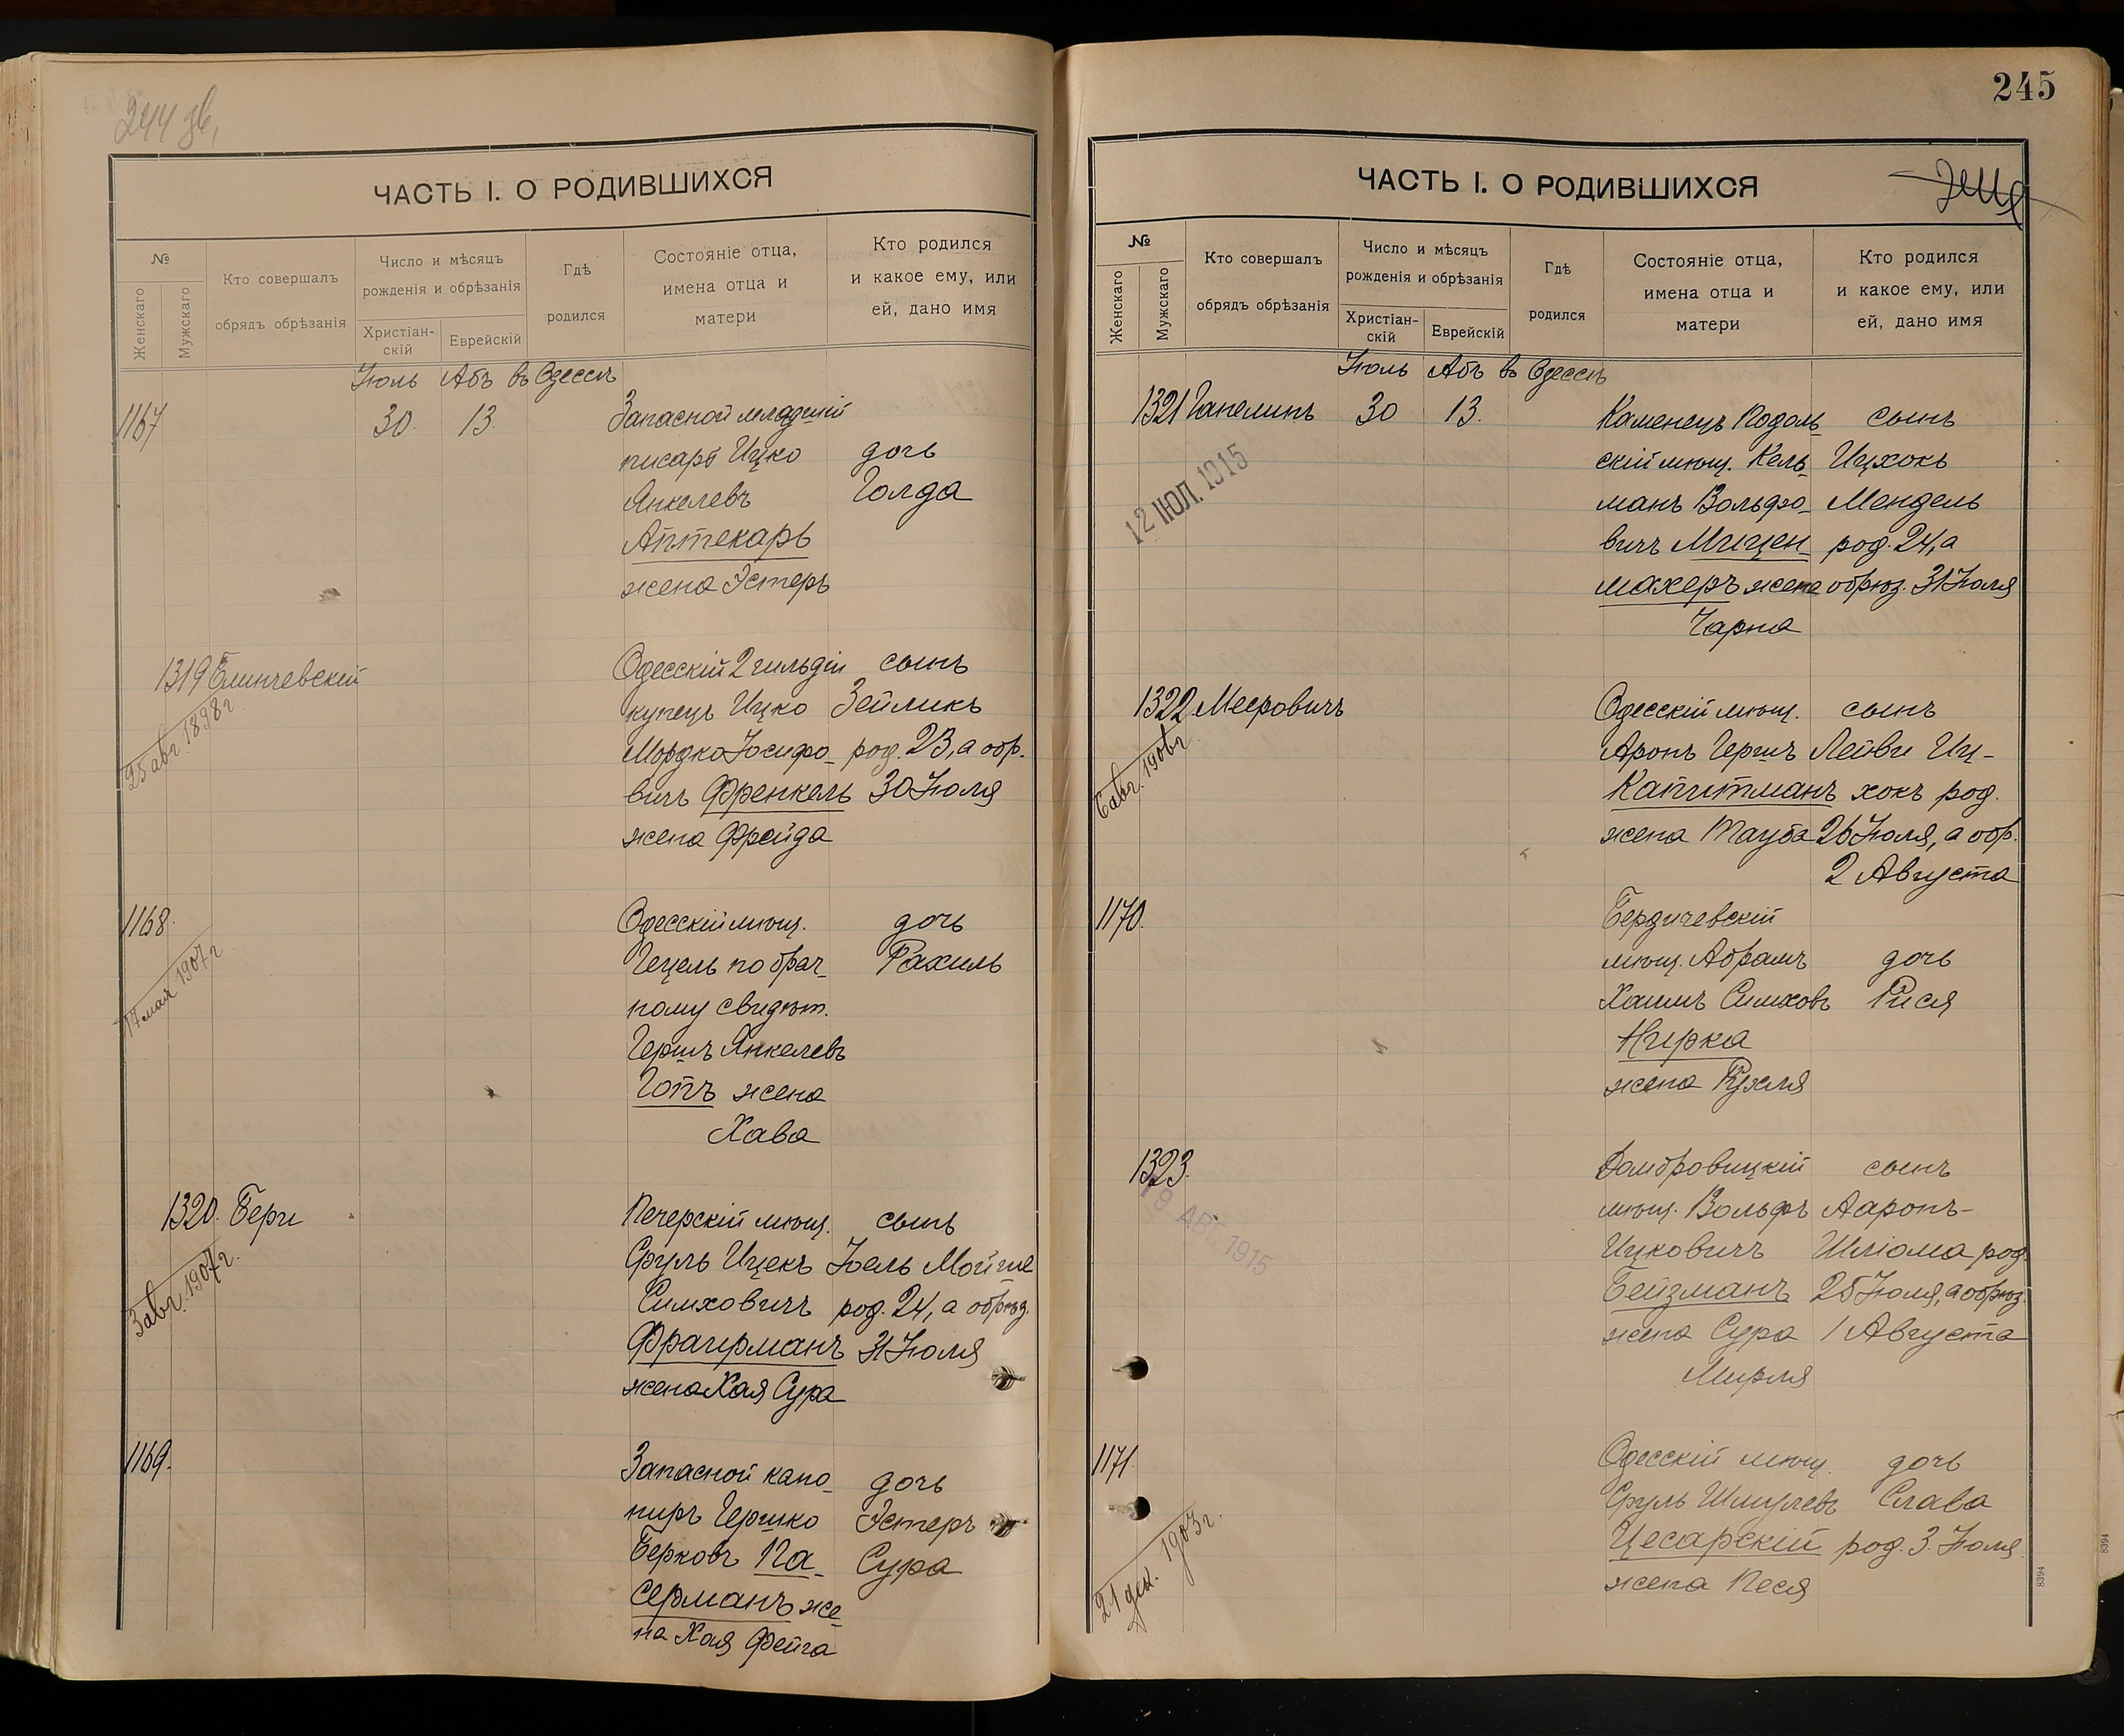 ЧАСТЬ I. О РОДИВШИХСЯ
№
Женскаго
Мужскаго
Кто совершалъ
обрядъ обрѣзанія
Число и мѣсяцъ
рожденія и обрѣзанія
Христіан-
скій
Еврейскій
Гдѣ
родился
Состояніе отца,
имена отца и
матери
Кто родился
и какое ему, или
ей, дано имя
Іюль Абъ въ Одессѣ
1167 30. 13. Запасной младшій
писарь Ицко дочь
Янкелевъ Голда
Аптекарь
жена Эстеръ
1319 Блинчевскій Одесскій 2 гильдіи сынъ
25 авг. 1898 г.
купецъ Ицко Зейликъ
Мордко Іосифо- род. 23, а обр.
вичъ Френкель 30 Іюля
жена Фрейда
1168. Одесскій мѣщ. дочь
17 мая 1907 г.
Гецель по брач- Рахиль
ному свидѣт.
Гершъ Янкелевъ
Готъ жена
Хава
1320. Берг Печерскій мѣщ. сынъ
3 авг. 1907 г.
Сруль Ицекъ Іоель Мойше
Симховичъ род. 24, а обрѣз.
Фрагерманъ 31 Іюля
жена Хая Сура
1169. Запасной кано- дочь
ниръ Гершко Эстеръ
Берковъ Па- Сура
серманъ же-
на Хая Фейга
245
ЧАСТЬ I. О РОДИВШИХСЯ
№
Женскаго
Мужскаго
Кто совершалъ
обрядъ обрѣзанія
Число и мѣсяцъ
рожденія и обрѣзанія
Христіан-
скій
Еврейскій
Гдѣ
родился
Состояніе отца,
имена отца и
матери
Кто родился
и какое ему, или
ей, дано имя
Іюль Абъ въ Одессѣ
1321 Гапелинъ 30 13. Каменецъ Подоль- сынъ
12 ІЮЛ. 1915
скій мѣщ. Кель- Ицхокъ
манъ Вольфо- Мендель
вичъ Мицен- род. 24, а
махеръ жена обрѣз. 31 Іюля
Чарна
1322 Мееровичъ Одесскій мѣщ. сынъ
6 авг. 1906 г.
Аронъ Гершъ Лейви Иц-
Капитманъ хокъ род.
жена Тауба 26 Іюля, а обр.
2 Августа
1170. Бердичевскій
мѣщ. Абрамъ дочь
Хаимъ Симховъ Рися
Нирка
жена Рухля
1323. Домбровицкій сынъ
АРГ. 1915
мѣщ. Вольфъ Ааронъ-
Ицковичъ Шліома род.
Бейзманъ 25 Іюля, а обрѣз.
жена Сура 1 Августа
Мирля
1171. Одесскій мѣщ. дочь
21 дек. 1903 г.
Сруль Шмулевъ Слава
Цесарскій род. 3. Іюля
жена Песя
8394
8394